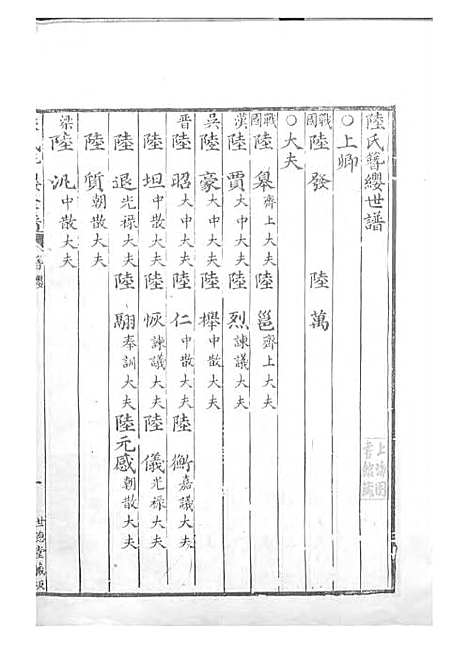 陸氏簪纓世譜
○上卿
戰國 陸發 陸萬
○大夫
戰國 陸皋齊上大夫 陸邕齊上大夫
漢 陸賈大中大夫 陸烈諫議大夫
吳 陸豪大中大夫 陸櫸中散大夫
晉 陸昭大中大夫 陸仁中散大夫 陸衡嘉議大夫
陸坦中散大夫 陸恢諫議大夫 陸儀光祿大夫
陸退光祿大夫 陸翮奉訓大夫 陸元感朝散大夫
陸質朝散大夫
梁 陸汎中散大夫
簪纓
一
世德堂藏板
上海圖書館藏